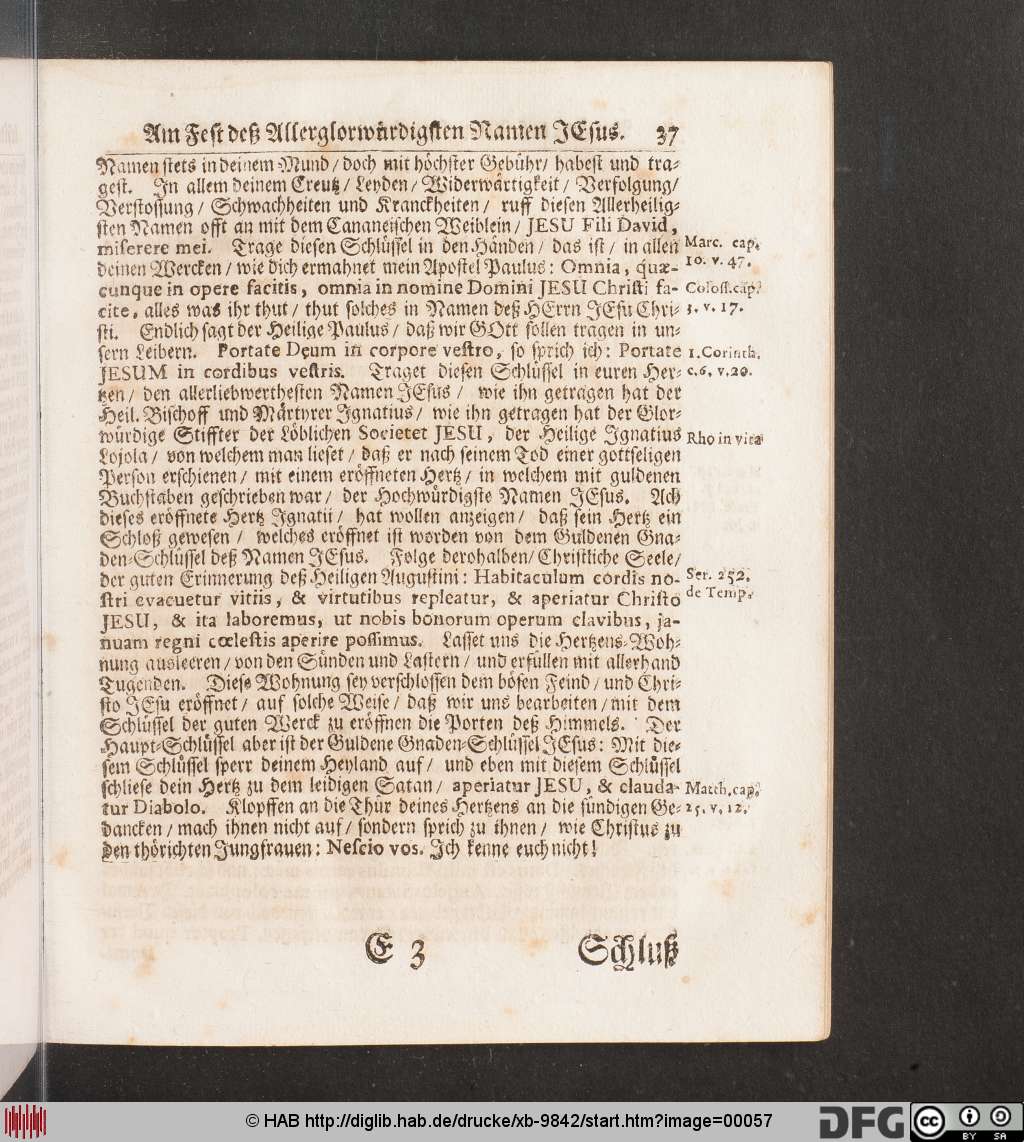 Am Fest deß Allerglorwürdigsten Namen JEsus. 37
Namen stets in deinem Mund / doch mit höchster Gebühr / habest und tra-
gest. In allem deinem Creutz / Leyden / Widerwärtigkeit / Verfolgung /
Verstossung / Schwachheiten und Kranckheiten / ruff diesen Allerheilig-
sten Namen offt an mit dem Cananeischen Weiblein / JESU Fili David,
miserere mei. Trage diesen Schlüssel in den Händen / das ist / in allen
Marc. cap.
deinen Wercken / wie dich ermahnet mein Apostel Paulus: Omnia, quæ-
10. v. 47.
cunque in opere facitis, omnia in nomine Domini JESU Christi fa-
Coloss. cap.
cite, alles was ihr thut / thut solches in Namen deß HErrn JEsu Chri-
3. v. 17.
sti. Endlich sagt der Heilige Paulus / daß wir GOtt sollen tragen in un-
sern Leibern. Portate Deum in corpore vestro, so sprich ich: Portate
1. Corinth.
JESUM in cordibus vestris. Traget diesen Schlüssel in euren Her-
c. 6. v. 20.
tzen / den allerliebwerthesten Namen JEsus / wie ihn getragen hat der
Heil. Bischoff und Märtyrer Ignatius / wie ihn getragen hat der Glor-
würdige Stiffter der Löblichen Societet JESU, der Heilige Ignatius
Rho in vita
Lojola / von welchem man lieset / daß er nach seinem Tod einer gottseligen
Person erschienen / mit einem eröffneten Hertz / in welchem mit guldenen
Buchstaben geschrieben war / der Hochwürdigste Namen JEsus. Ach
dieses eröffnete Hertz Ignatii / hat wollen anzeigen / daß sein Hertz ein
Schloß gewesen / welches eröffnet ist worden von dem Guldenen Gna-
den-Schlüssel deß Namen JEsus. Folge derohalben / Christliche Seele /
der guten Erinnerung deß Heiligen Augustini: Habitaculum cordis no-
Ser. 252.
stri evacuetur vitiis, & virtutibus repleatur, & aperiatur Christo
de Temp.
JESU, & ita laboremus, ut nobis bonorum operum clavibus, ja-
nuam regni cœlestis aperire possimus. Lasset uns die Hertzens-Woh-
nung ausleeren / von den Sünden und Lastern / und erfüllen mit allerhand
Tugenden. Diese Wohnung sey verschlossen dem bösen Feind / und Chri-
sto JEsu eröffnet / auf solche Weise / daß wir uns bearbeiten / mit dem
Schlüssel der guten Werck zu eröffnen die Porten deß Himmels. Der
Haupt-Schlüssel aber ist der Guldene Gnaden-Schlüssel JEsus: Mit die-
sem Schlüssel sperr deinem Heyland auf / und eben mit diesem Schlüssel
schliese dein Hertz zu dem leidigen Satan / aperiatur JESU, & clauda-
Matth. cap.
tur Diabolo. Klopffen an die Thür deines Hertzens an die sündigen Ge-
25. v. 12.
dancken / mach ihnen nicht auf / sondern sprich zu ihnen / wie Christus zu
den thörichten Jungfrauen: Nescio vos. Ich kenne euch nicht!
E 3 Schluß
© HAB http://diglib.hab.de/drucke/xb-9842/start.htm?image=00057
DFG cc BY SA